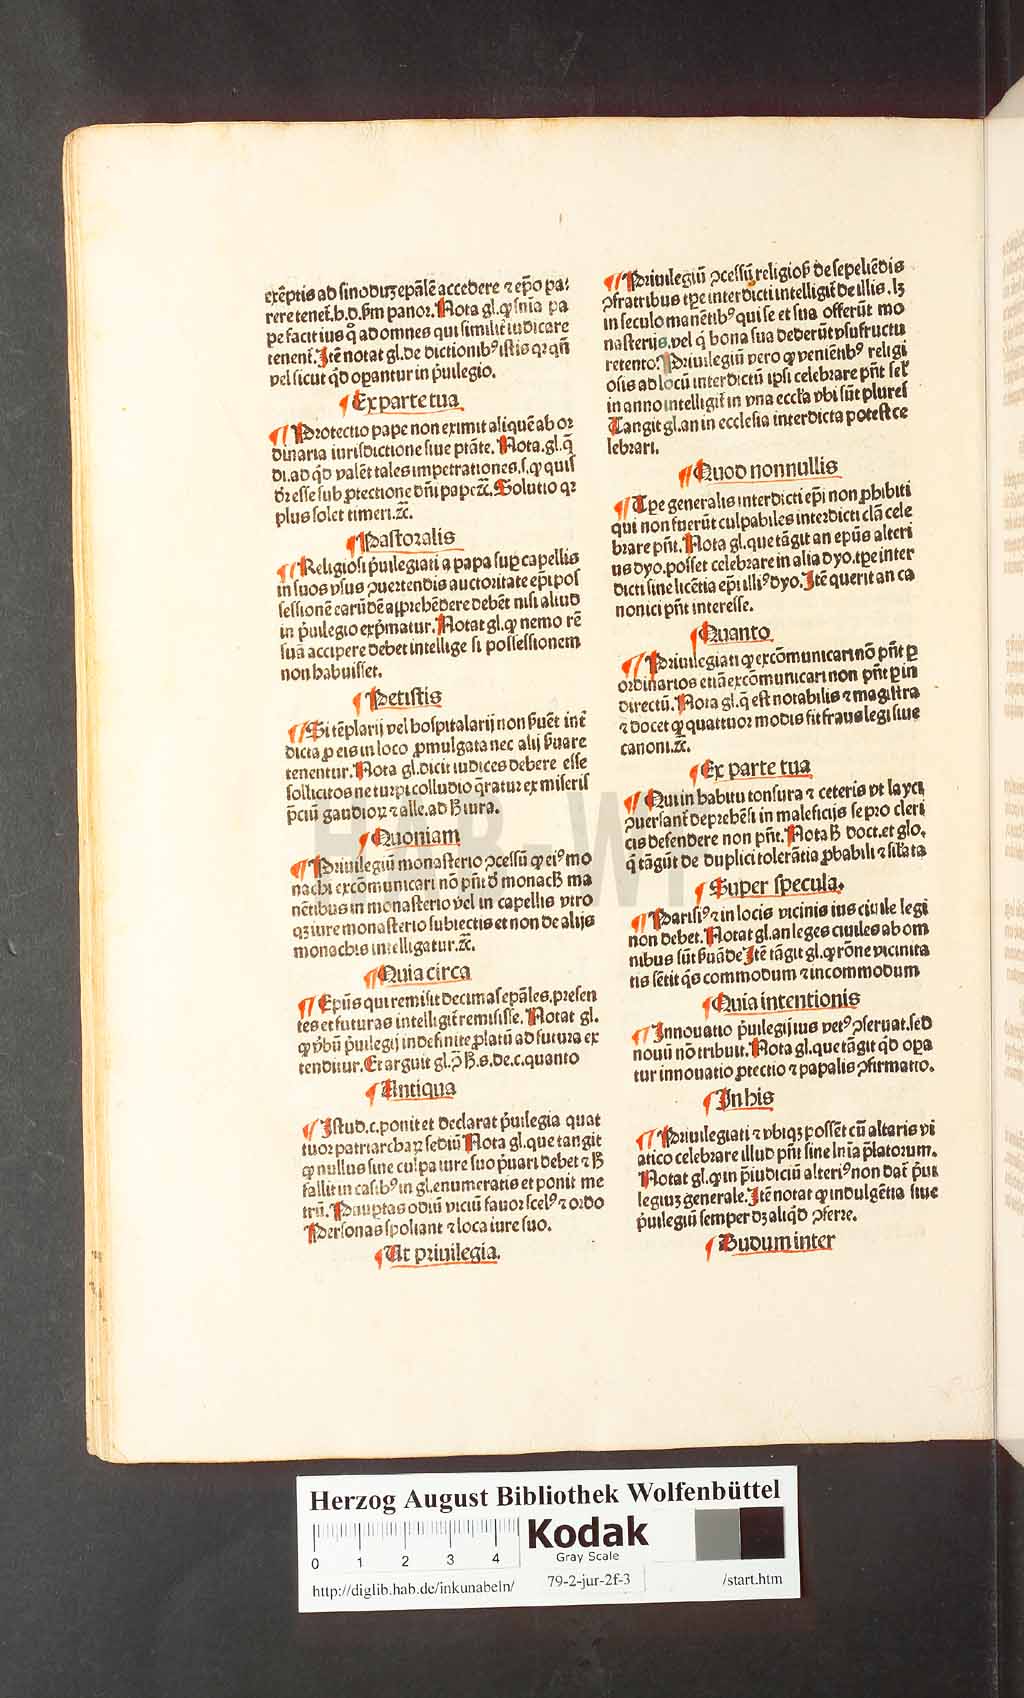 exẽptis ad sinoduꝫ epãlẽ accedere ⁊ ep̃o pa⸗
rere tenet̃.h.d.ẜm panor. Nota gl.ꝙ snĩa pa
pe facit ius q̃ ad omnes qui similit̃ iudicare
tenent̃. Itẽ notat gl.de dictionibꝰ istis qr qñ
vel sicut qd̃ opantur in p̃uilegio.
¶ Ex parte tua
¶ Protectio pape non eximit aliquẽ ab or
dinaria iurisdictione siue ptãte. Nota.gl.q̃
di.ad qd̃ valẽt tales impetrationes.s.ꝙ quis
dr̃ esse sub ꝓtectione dñi pape ⁊c̃. Solutio qr
plus solet timeri.⁊c̃.
¶ Pastoralis
¶ Religiosi p̃uilegiati a papa suꝑ capellis
in suos vsus ꝯuertendis auctoritate ep̃i pos
sessionẽ earũdẽ apprehẽdere debẽt nisi aliud
in p̃uilegio exp̃matur. Notat gl.ꝙ nemo rẽ
suã accipere debet intellige si possessionem
non habuisset.
¶ Petistis
¶ Si tẽplarij vel hospitalarij non ẜuẽt int̃
dicta ꝓ eis in loco ꝓmulgata nec alij ẜuare
tenentur. Nota gl.dicit iudices debere esse
sollicitos ne turpi colludio q̃ratur ex miseris
p̃ciũ gaudioꝝ ⁊ alle.ad h̃ iura.
¶ Quoniam
¶ Priuilegiũ monasterio ꝯcessũ ꝙ eiꝰ mo
nachi excõmunicari nõ pñt d̃ monach̃ ma
nẽtibus in monasterio vel in capellis vtro
qꝫ iure monasterio subiectis et non de alijs
monachis intelligatur.⁊c̃.
¶ Quia circa
¶ Ep̃us qui remisit decimas epãles.presen
tes et futuras intelligit̃ remisisse. Notat gl.
ꝙ vb̃ũ p̃uilegij indefinite ꝓlatũ ad futura ex
tenditur. Et arguit gl.ꝯ̃ h̃.s.de.c.quanto
¶ Antiqua
¶ Istud.c.ponit et declarat p̃uilegia quat
tuor patriarchaꝝ sediũ Nota gl.que tangit
ꝙ nullus sine culpa iure suo p̃uari debet ⁊ h̃
fallit in casibꝰ in gl.enumeratis et ponit me
trũ. Pauptas odiũ viciũ fauor scelꝰ ⁊ ordo
Personas spoliant ⁊ loca iure suo.
¶ Ut priuilegia.
¶ Priuilegiũ ꝯcessũ religiosꝭ de sepeliẽdis
ꝯfratribus tp̃e interdicti intelligit̃ de illis.lꝫ
in seculo manẽtibꝰ qui se et sua offerũt mo
nasterijs.vel q̃ bona sua dederũt vsufructu
retento. Priuilegiũ vero ꝙ veniẽtibꝰ religi
osis ad locũ interdictũ ipsi celebrare pñt sel̃
in anno intelligit̃ in vna eccl̃a vbi sũt plures
Tangit gl.an in ecclesia interdicta potest ce
lebrari.
¶ Quod nonnullis
¶ Tp̃e generalis interdicti ep̃i non ꝓhibiti
qui non fuerũt culpabiles interdicti clã cele
brare pñt. Nota gl.que tãgit an ep̃us alteri
us dyo.posset celebrare in alia dyo.tp̃e inter
dicti sine licẽtia ep̃i illiꝰ dyo. Itẽ querit an ca
nonici pñt interesse.
¶ Quanto
¶ Priuilegiati ꝙ excõmunicari nõ pñt ꝑ
ordinarios etiã excõmunicari non pñt ꝑ in
directũ. Nota gl.q̃ est notabilis ⁊ magistra
⁊ docet ꝙ quattuor modis fit fraus legi siue
canoni.⁊c̃.
¶ Ex parte tua
¶ Qui in habitu tonsura ⁊ ceteris vt layci
ꝯuersant̃ dep̃hẽsi in maleficijs se pro cleri
cis defendere non pñt. Nota h̃ doct.et glo.
q̃ tãgũt de duplici tolerãtia ꝓbabili ⁊ sil̃ata
¶ Super specula.
¶ Parisiꝰ ⁊ in locis vicinis ius ciuile legi
non debet. Notat gl.an leges ciuiles ab om
nibus sũt ẜuãde Itẽ tãgit gl.ꝙ rõne vicinita
tis sẽtit qs̃ commodum ⁊ incommodum
¶ Quia intentionis
¶ Innouatio p̃uilegij ius vetꝰ ꝯseruat.sed
nouũ nõ tribuit. Nota gl.que tãgit qd̃ opa
tur innouatio ꝓtectio ⁊ papalis ꝯfirmatio.
¶ In his
¶ Priuilegiati ⁊ vbiqꝫ possẽt cũ altaris vi
atico celebrare illud pñt sine lnĩa p̃latorum.
Notat gl.ꝙ in p̃iudiciũ alteriꝰ non dat̃ p̃ui
legiuꝫ generale. Itẽ notat ꝙ indulgẽtia siue
p̃uilegiũ semper dꝫ aliqd̃ ꝯferre.
¶ Dudum inter
Herzog August Bibliothek Wolfenbüttel
0 1 2 3 4
Kodak
Gray Scale
http://diglib.hab.de/inkunabeln/ 79-2-jur-2f-3 /start.htm
HAB-WF